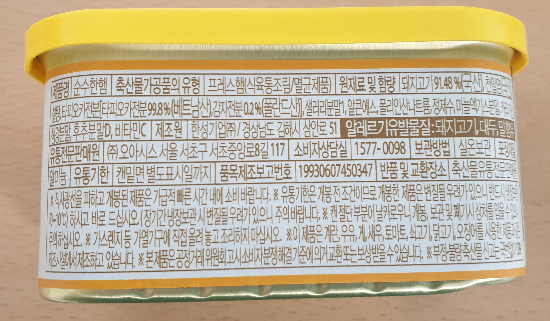 제품명 순수한햄 축산물가공품의 유형 프레스햄(식육통조림/멸균제품) 원재료 및 함량 돼지고기 91.48%(국산), 천일염
설탕, 타피오카전분[타피오카전분 99.8%(베트남산), 감자전분 0.2%(폴란드산)], 샐러리분말1, 알콘엑스, 폴리인산나트륨, 정제수, 마늘엑기스
생강분말, 후추분말D, 비타민C 제조원 한성기업㈜/ 경상남도 김해시 삼안로 51 알레르기 유발물질: 돼지고기, 대두, 밀
유통전문판매원 ㈜오아시스 서울 서초구 서초중앙로8길 117 소비자상담실 1577-0098 보관방법 실온보관
알미늄 유통기한 캔밑면 별도표시일까지 품목제조보고번호 19930607450347 반품 및 교환장소 축산물유통전문판매원
※ 직사광선을 피하고, 개봉된 제품은 가급적 빠른 시간 내에 소비 바랍니다. ※ 유통기한은 개봉 전 조건이므로 개봉한 제품은 변질될 우려가 있으니 반드시
(0~10℃) 하시고 바로 드십시오. (장기간 냉장보관 시 변질될 우려가 있으니 주의 바랍니다.) ※ 캔 절단 부분이 날카로우니 개봉, 보관 및 폐기 시 상처를 입을 수
주의하십시오. ※ 가스렌지 등 가열기구에 직접 올려 놓고 조리하지 마십시오. ※ 이 제품은 계란, 우유, 게, 새우, 토마토, 쇠고기, 닭고기, 오징어를 사용한
제조시설에서 제조하고 있습니다. ※ 본 제품은 공정거래위원회 고시 소비자분쟁해결 기준에 의거 교환 또는 보상받을 수 있습니다. ※ 부정·불량축산물 신고는 국번없이